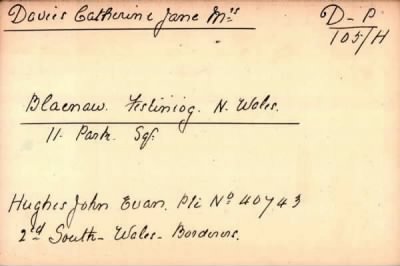 Davies Catherine Jane Mrs
D-P
105/H
Blaenaw. Festiniog. N. Wales.
11. Park. Sq.
Hughes John Evan. Pte No 40743
2nd South-Wales-Borderers.